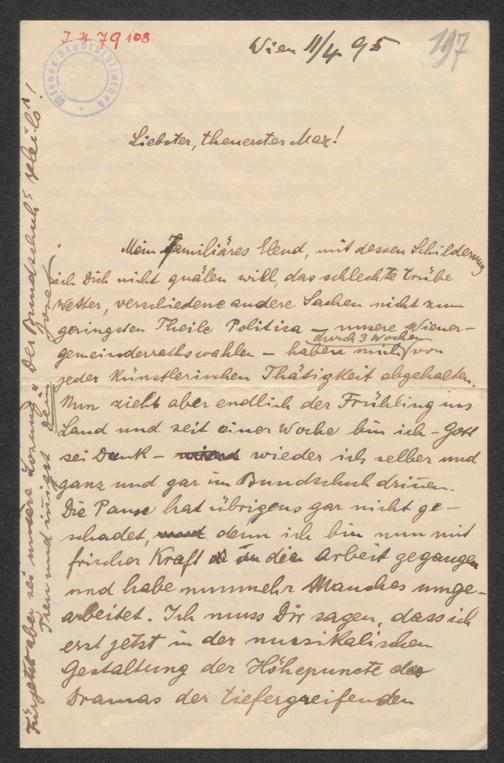 J. N. 79108
Wien 11/4 95
197
Wiener Stadtbibliothek
Liebster, theuerster Max!
Mein familiäres Elend, mit dessen Schilderung
ich Dich nicht quälen will, das schlechte trübe
Wetter, verschiedene andere Sachen nicht zum
geringsten Theile Politica – unsere Wiener-
durch 3 Wochen
gemeinderathswahlen – haben mich von
jeder künstlerischen Thätigkeit abgehalten.
Nun zieht aber endlich der Frühling ins
Land und seit einer Woche bin ich – Gott
sei Dank – wieder ich selber und
ganz und gar im Bundschuh drinnen.
Die Pause hat übrigens gar nicht ge-
schadet, denn ich bin nun mit
frischer Kraft an die Arbeit gegangen
und habe nunmehr Manches umge-
arbeitet. Ich muss Dir sagen, dass ich
erst jetzt in der musikalischen
Gestaltung der Höhepuncte des
Dramas der tiefergreifenden
Für jetzt aber sei unsere Losung: "Der Bundschuh"
Treu und innigst Dein